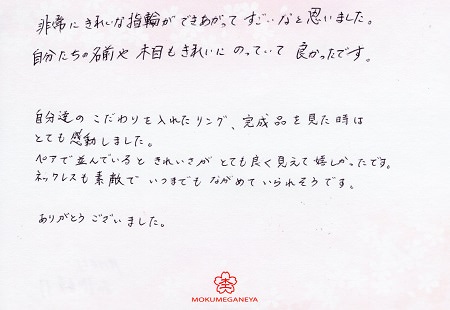 非常にきれいな指輪ができあがってすごいなと思いました。
自分たちの名前や木目もきれいにのっていて良かったです。
自分達のこだわりを入れたリング、完成品を見た時は
とても感動しました。
ペアで並んでいるときれいさがとても良く見えて嬉しかったです。
ネックレスも素敵でいつまでもながめていられそうです。
ありがとうございました。
MOKUMEGANEYA